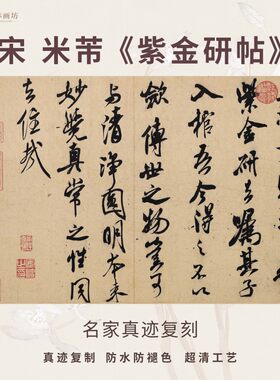 宋 米芾《紫金研帖》
紫金研去嘱其子
入棺吾今得之不以
斂傳世之物豈可
与清淨圓明本来
妙覺真常之性同
去住哉
名家真迹复刻
真迹复制 防水防褪色 超清工艺